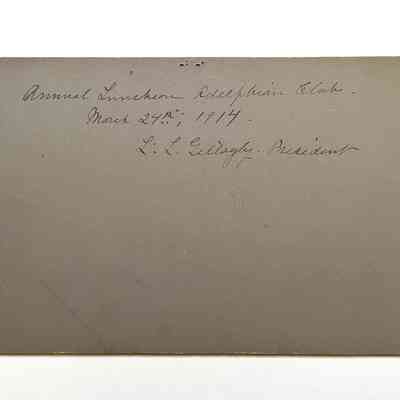 Annual Luncheon Adelphian Club.
March 24th, 1914.
L. L. President